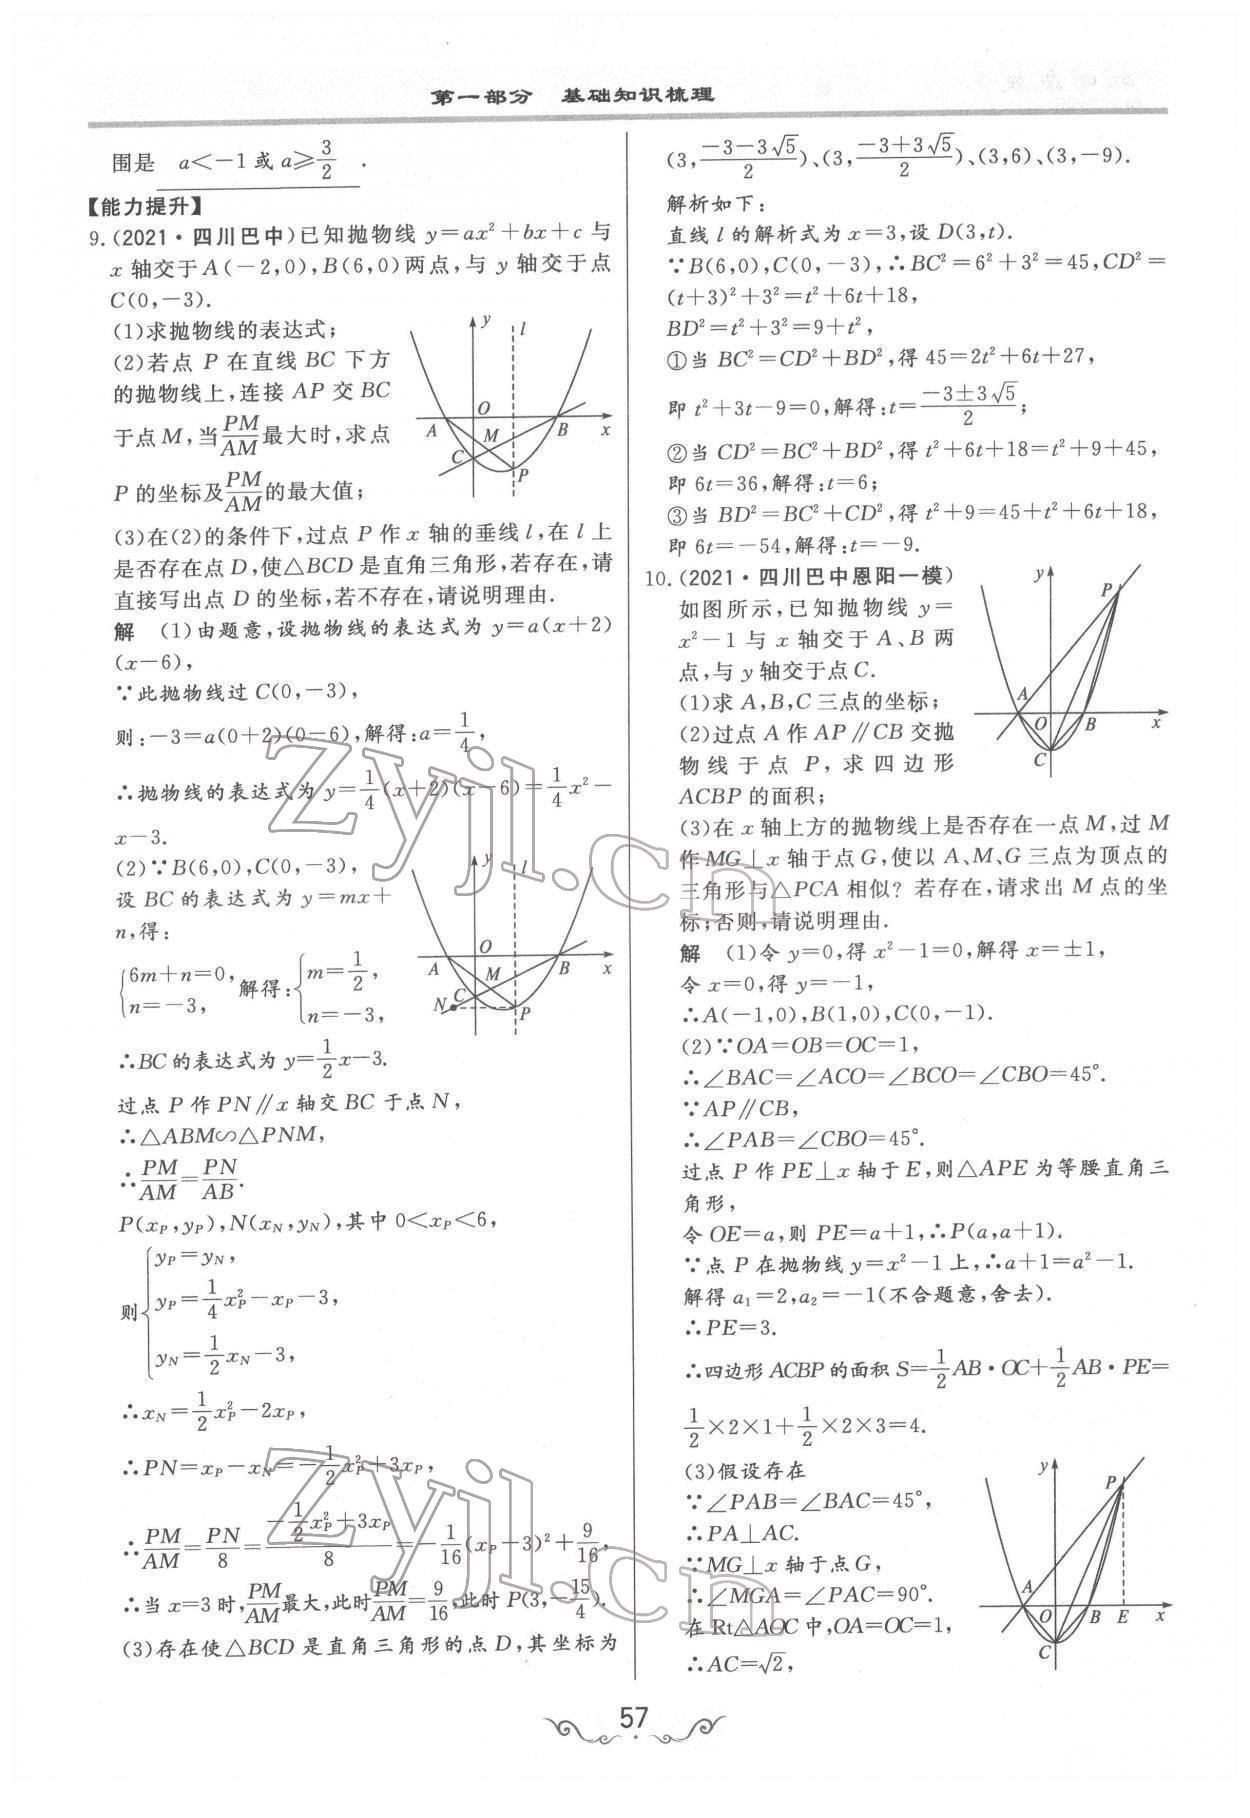 第一部分 基础知识梳理
围是 a<-1或a≥3/2 .
【能力提升】
9.(2021·四川巴中)已知抛物线 y=ax²+bx+c 与
x 轴交于A(-2,0),B(6,0)两点,与 y 轴交于点
C(0,-3).
(1)求抛物线的表达式;
(2)若点 P 在直线 BC 下方
的抛物线上,连接 AP 交 BC
于点 M,当PM/AM最大时,求点
P 的坐标及PM/AM的最大值;
y
l
O
A
M
B
x
C
P
(3)在(2)的条件下,过点 P 作 x 轴的垂线 l,在 l 上
是否存在点 D,使△BCD 是直角三角形,若存在,请
直接写出点 D 的坐标,若不存在,请说明理由.
解 (1)由题意,设抛物线的表达式为 y=a(x+2)
(x-6),
∵此抛物线过 C(0,-3),
则:-3=a(0+2)(0-6),解得:a=1/4,
∴抛物线的表达式为 y=1/4(x+2)(x-6)=1/4x²-
x-3.
(2)∵B(6,0),C(0,-3),
设 BC 的表达式为 y=mx+
n,得:
{6m+n=0, n=-3, 解得:{m=1/2, n=-3,
y
l
O
A
M
B
x
N
C
P
∴BC 的表达式为 y=1/2x-3.
过点 P 作 PN∥x 轴交 BC 于点 N,
∴△ABM∽△PNM,
∴PM/AM=PN/AB.
P(xP,yP),N(xN,yN),其中 0<xP<6,
则{yP=yN,
yP=1/4xP²-xP-3,
yN=1/2xN-3,
∴xN=1/2xP²-2xP,
∴PN=xP-xN=-1/2xP²+3xP,
∴PM/AM=PN/8=(-1/2xP²+3xP)/8=-1/16(xP-3)²+9/16,
∴当 x=3 时,PM/AM最大,此时PM/AM=9/16,此时 P(3,-15/4).
(3)存在使△BCD 是直角三角形的点 D,其坐标为
(3,(-3-3√5)/2)、(3,(-3+3√5)/2)、(3,6)、(3,-9).
解析如下:
直线 l 的解析式为 x=3,设 D(3,t).
∵B(6,0),C(0,-3),∴BC²=6²+3²=45,CD²=
(t+3)²+3²=t²+6t+18,
BD²=t²+3²=9+t²,
①当 BC²=CD²+BD²,得 45=2t²+6t+27,
即 t²+3t-9=0,解得:t=(-3±3√5)/2;
②当 CD²=BC²+BD²,得 t²+6t+18=t²+9+45,
即 6t=36,解得:t=6;
③当 BD²=BC²+CD²,得 t²+9=45+t²+6t+18,
即 6t=-54,解得:t=-9.
10.(2021·四川巴中恩阳一模)
如图所示,已知抛物线 y=
x²-1 与 x 轴交于 A、B 两
点,与 y 轴交于点 C.
(1)求 A,B,C 三点的坐标;
(2)过点 A 作 AP∥CB 交抛
物线于点 P,求四边形
ACBP 的面积;
y
P
A
O
B
x
C
(3)在 x 轴上方的抛物线上是否存在一点 M,过 M
作 MG⊥x 轴于点 G,使以 A、M、G 三点为顶点的
三角形与△PCA 相似?若存在,请求出 M 点的坐
标;否则,请说明理由.
解 (1)令 y=0,得 x²-1=0,解得 x=±1,
令 x=0,得 y=-1,
∴A(-1,0),B(1,0),C(0,-1).
(2)∵OA=OB=OC=1,
∴∠BAC=∠ACO=∠BCO=∠CBO=45°.
∵AP∥CB,
∴∠PAB=∠CBO=45°.
过点 P 作 PE⊥x 轴于 E,则△APE 为等腰直角三
角形,
令 OE=a,则 PE=a+1,∴P(a,a+1).
∵点 P 在抛物线 y=x²-1 上,∴a+1=a²-1.
解得 a₁=2,a₂=-1(不合题意,舍去).
∴PE=3.
∴四边形 ACBP 的面积 S=1/2AB·OC+1/2AB·PE=
1/2×2×1+1/2×2×3=4.
(3)假设存在
∵∠PAB=∠BAC=45°,
∴PA⊥AC.
∵MG⊥x 轴于点 G,
∴∠MGA=∠PAC=90°.
在 Rt△AOC 中,OA=OC=1,
∴AC=√2,
y
P
A
O
B
E
x
C
57
Zyjl.cn
Zyjl.cn